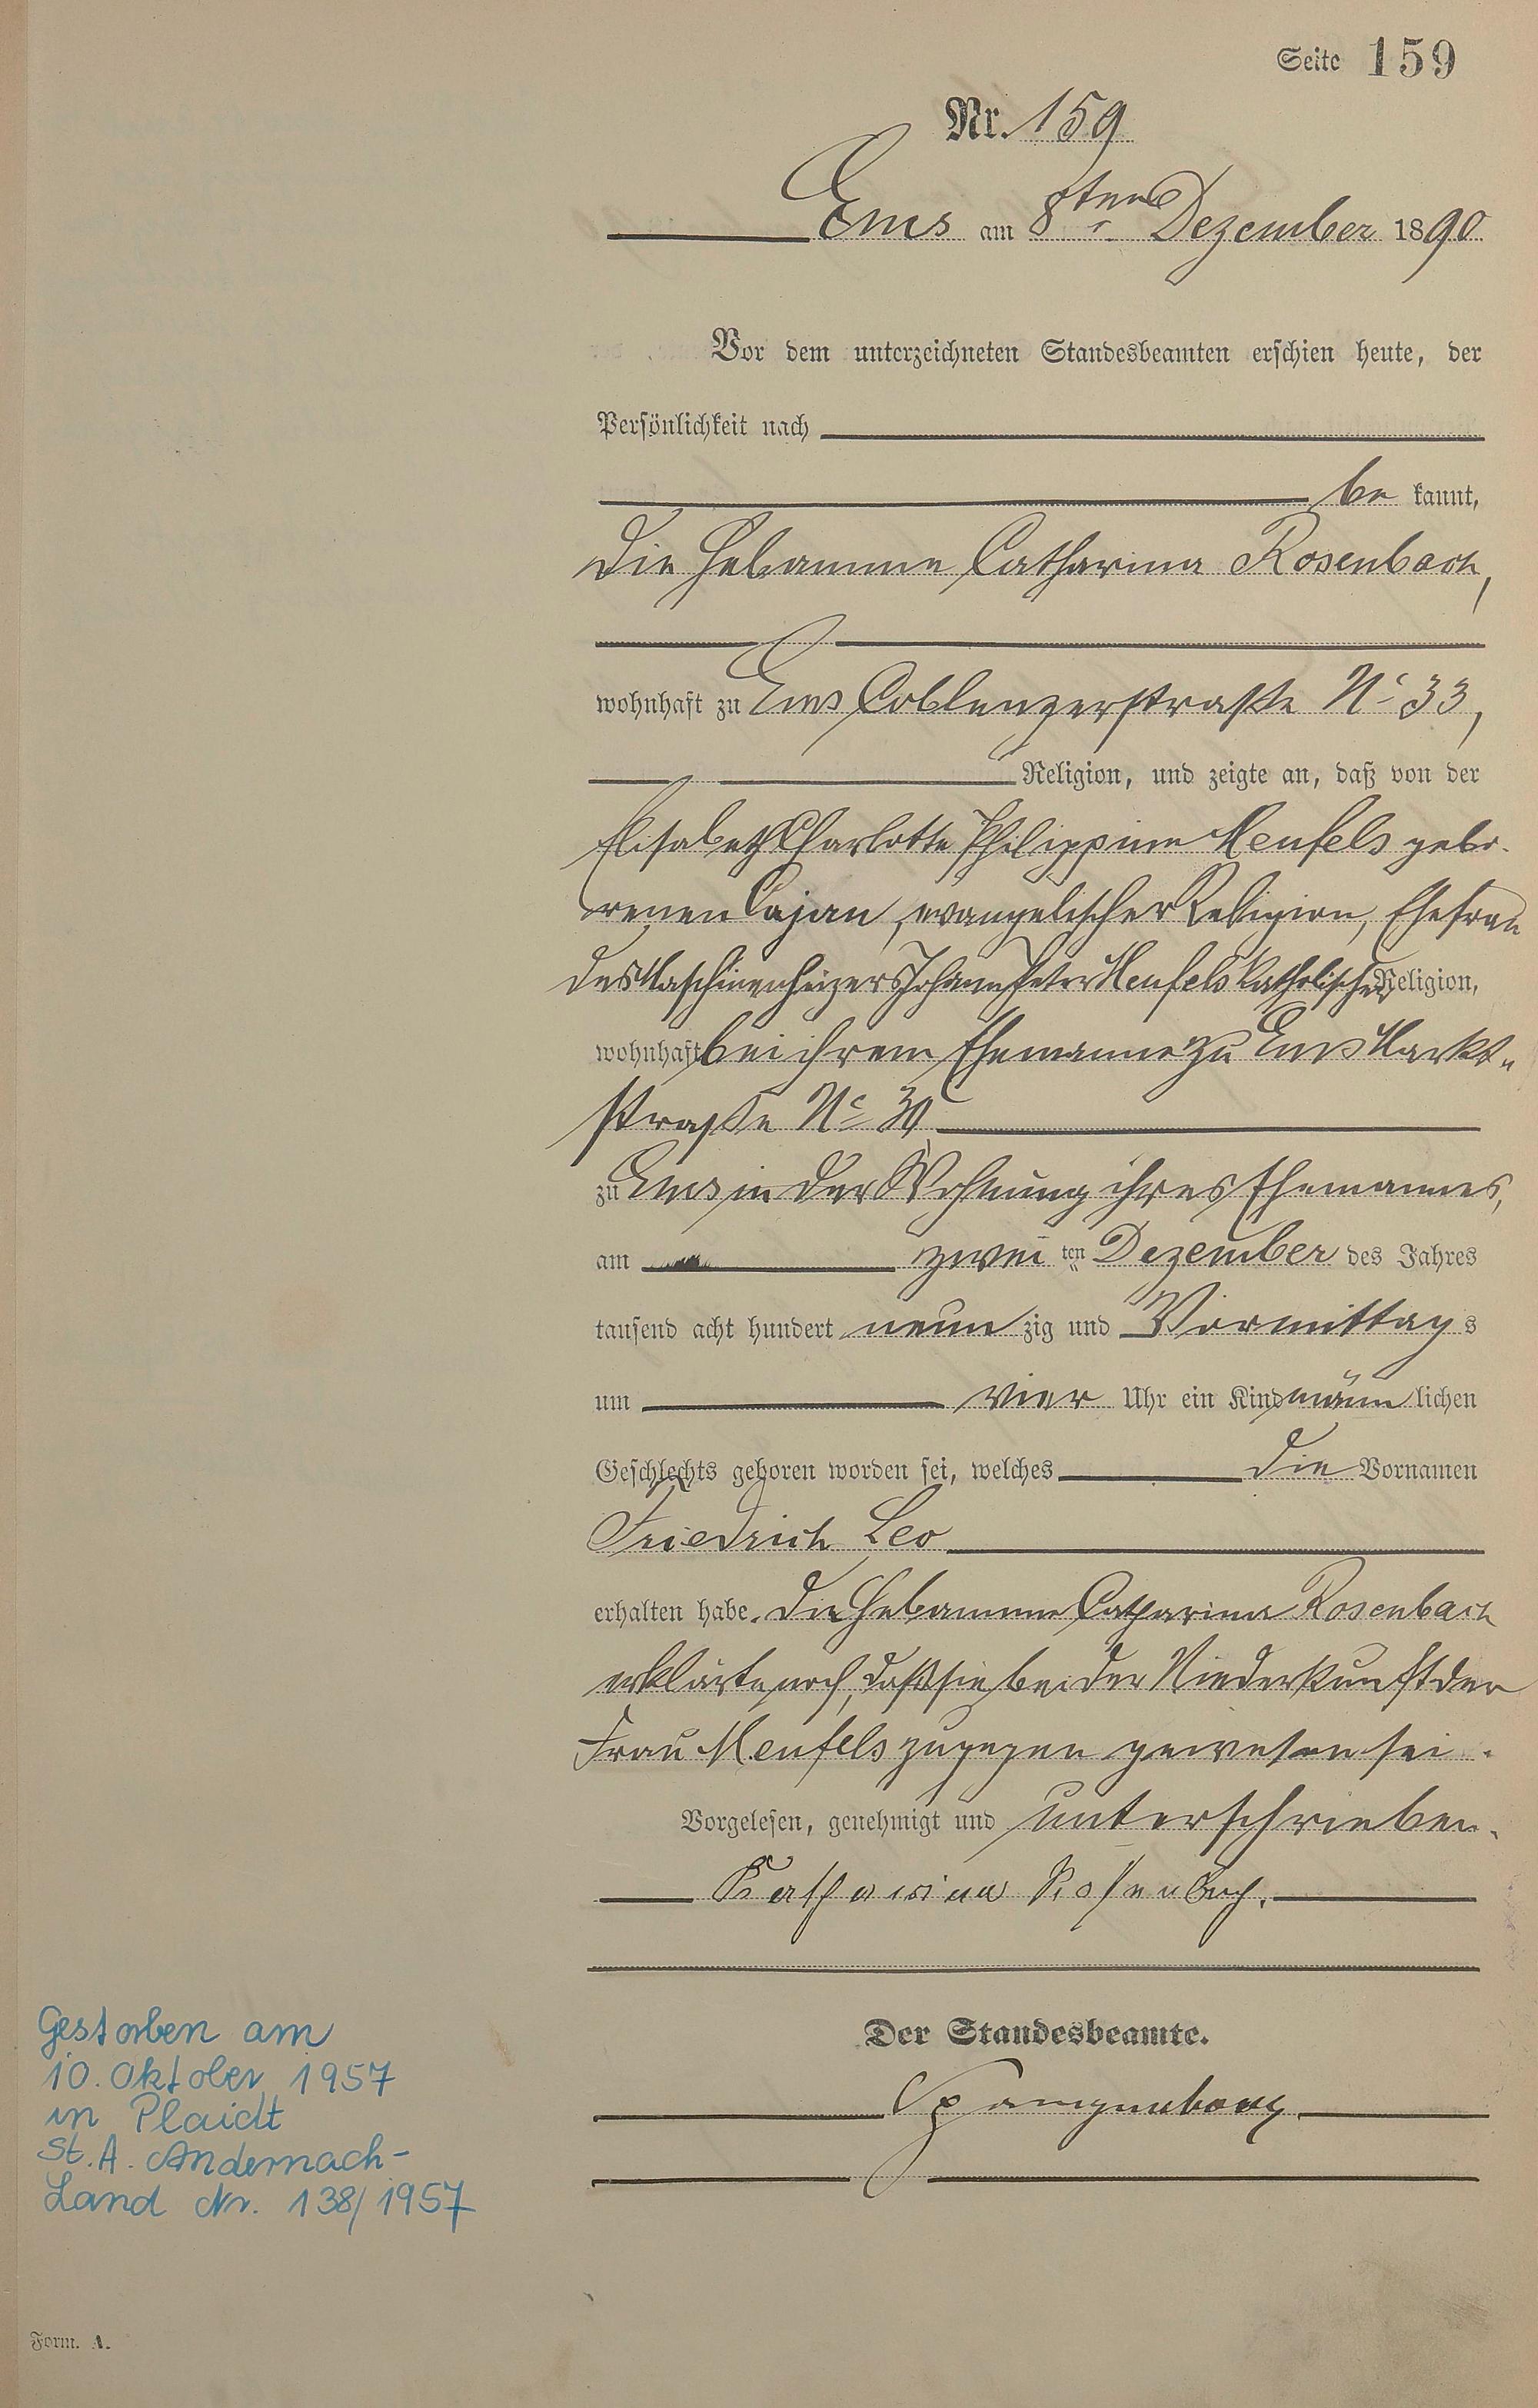 Seite 159
Nr. 159
Ems am 8ten Dezember 1890
Vor dem unterzeichneten Standesbeamten erschien heute, der
Persönlichkeit nach
be kannt,
die Hebamme Catharina Rosenbach,
wohnhaft zu Ems Coblenzerstraße No 33,
Religion, und zeigte an, daß von der
Elisabeth Charlotte Philippine Menfels gebo-
renen Cajan, evangelischer Religion, Ehefrau
des Maschinenheizers Johann Peter Menfels katholischer Religion,
wohnhaft bei ihrem Ehemanne zu Ems Markt-
straße No 30
zu Ems in der Wohnung ihres Ehemannes,
am zwei ten Dezember des Jahres
tausend acht hundert neun zig und Vormittag s
um vier Uhr ein Kind männ lichen
Geschlechts geboren worden sei, welches die Vornamen
Friedrich Leo
erhalten habe. Die Hebamme Catharina Rosenbach
erklärte noch, daß sie bei der Niederkunft der
Frau Menfels zugegen gewesen sei.
Vorgelesen, genehmigt und unterschrieben.
Katharina Rosenbach.
Der Standesbeamte.
Spangenberg
Gestorben am
10. Oktober 1957
in Plaidt
St. A. Andernach-
Land Nr. 138/1957
Form. A.